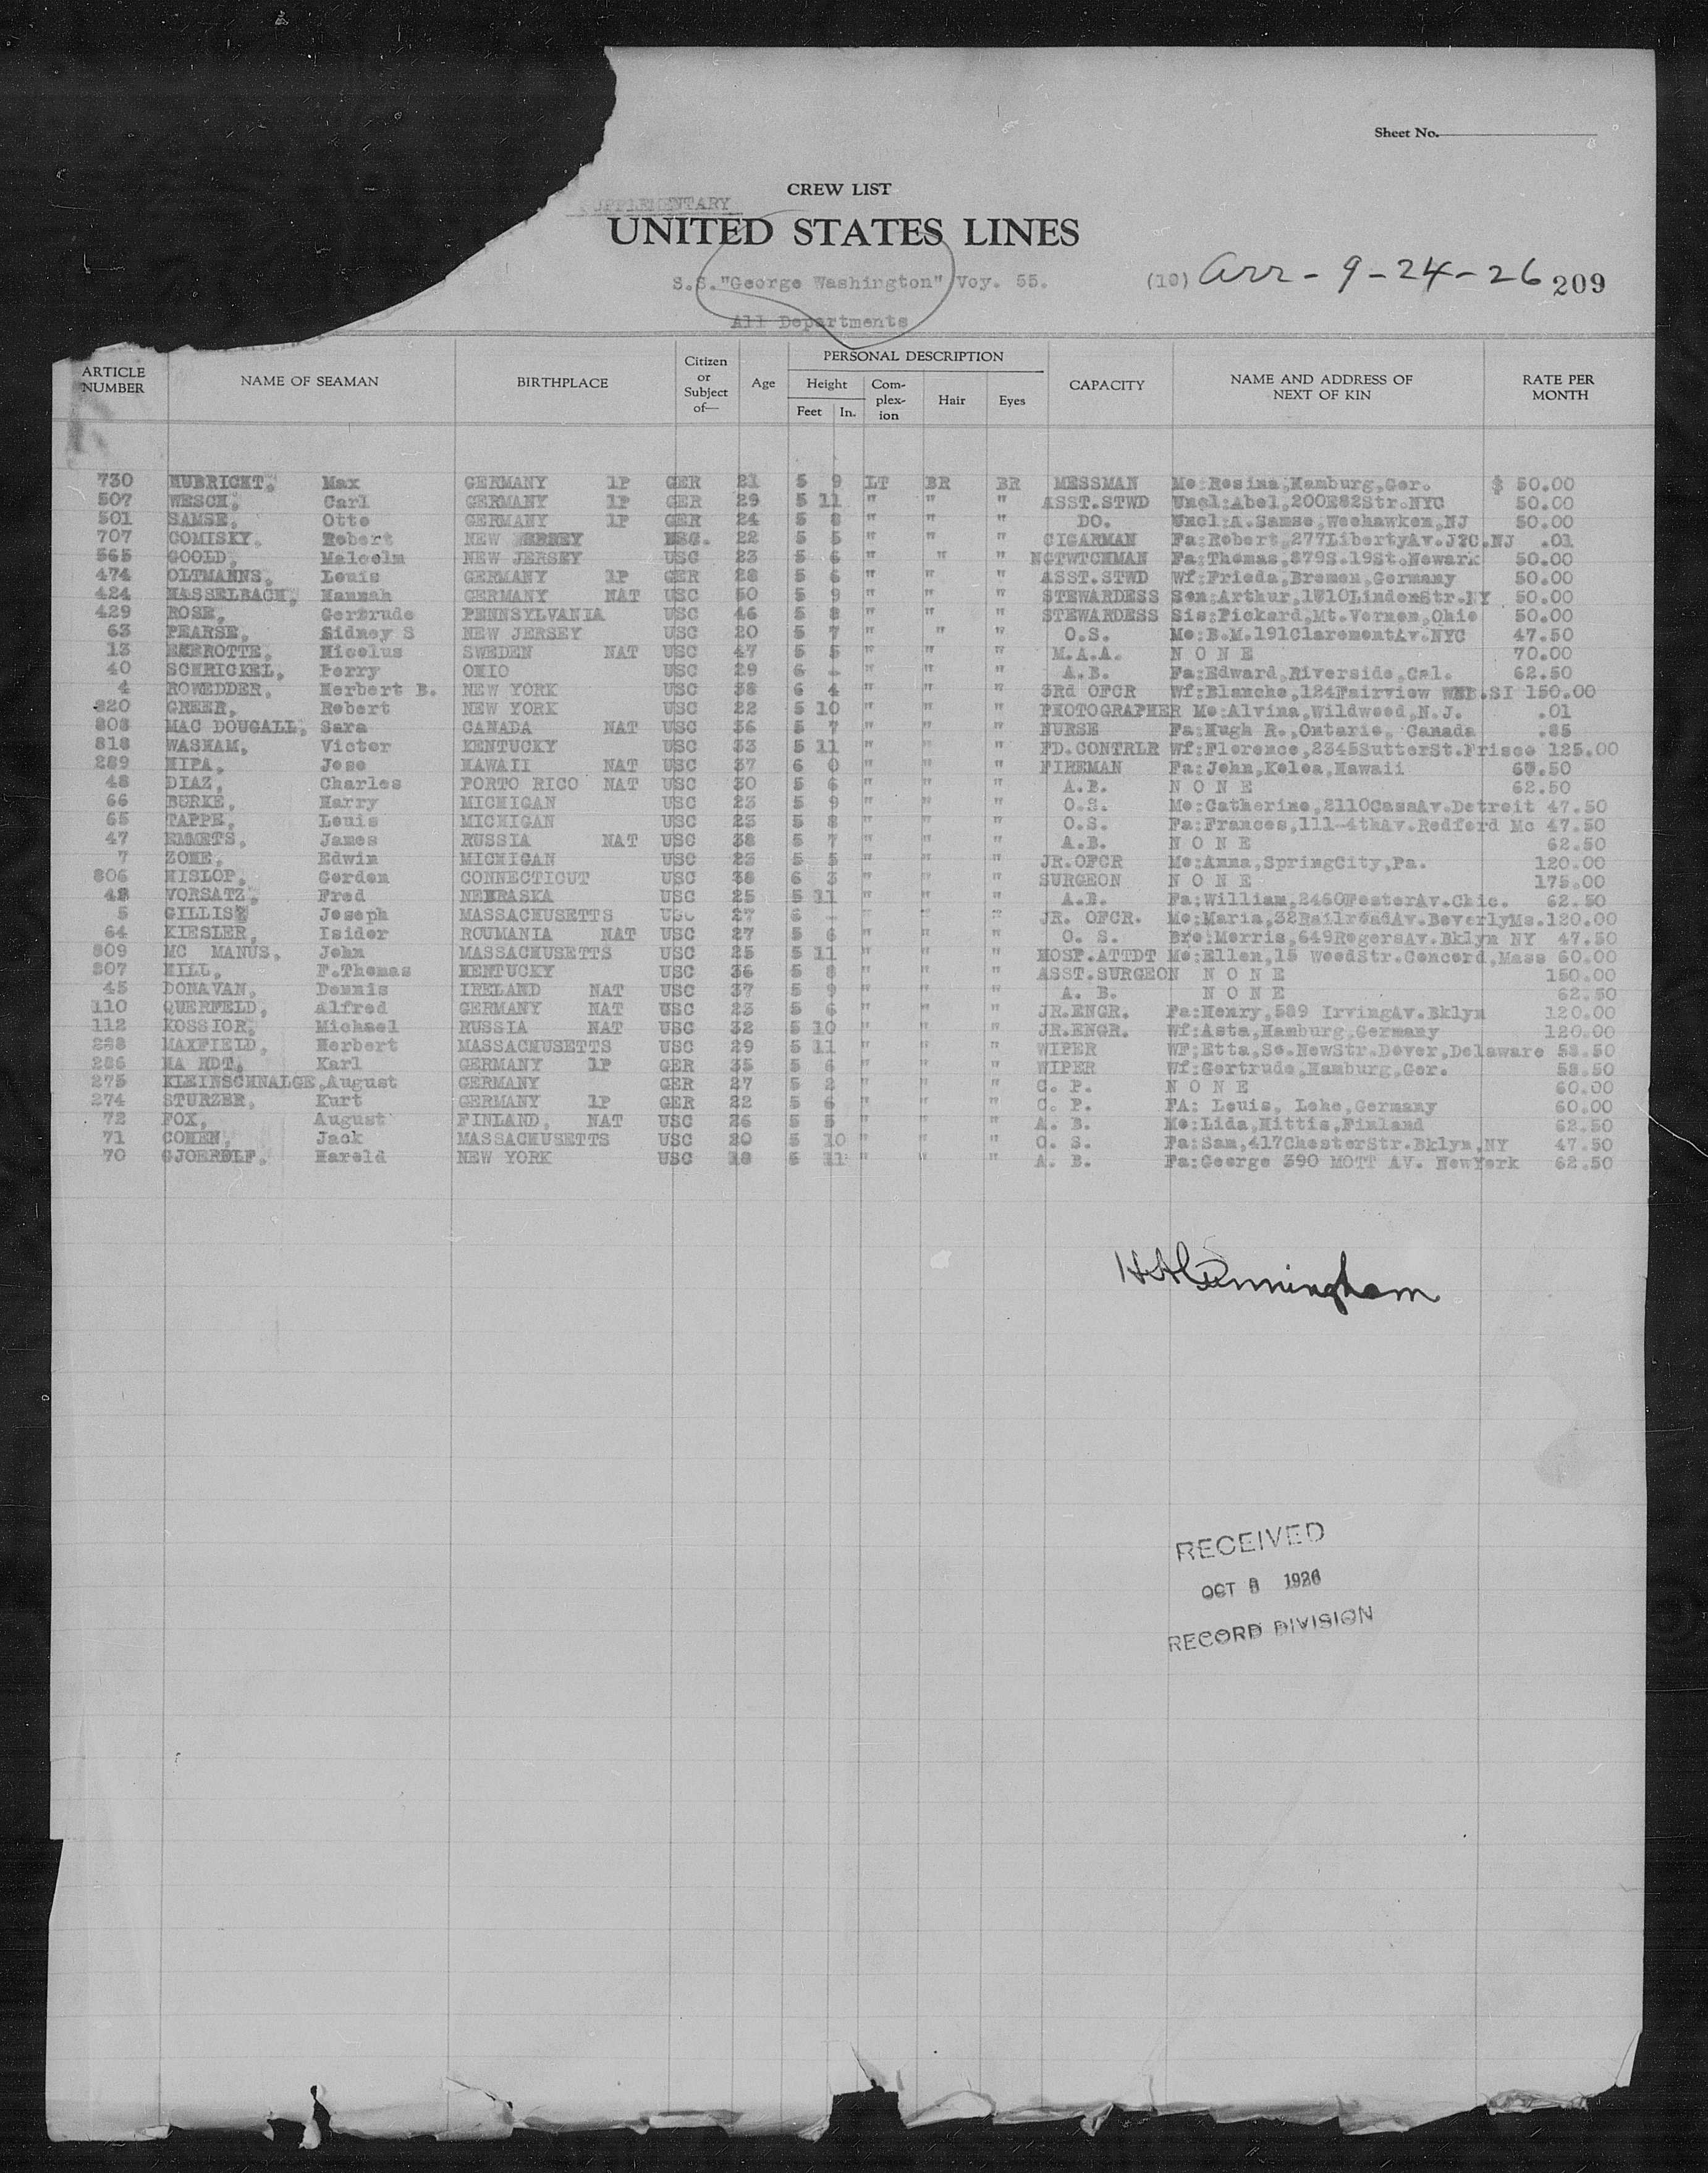 Sheet No.
CREW LIST
SUPPLEMENTARY
UNITED STATES LINES
S.S."George Washington" Voy. 55. (10) Arr - 9-24-26 209
All Departments
ARTICLE NUMBER NAME OF SEAMAN BIRTHPLACE Citizen or Subject of— Age PERSONAL DESCRIPTION Height Feet In. Com-plex-ion Hair Eyes CAPACITY NAME AND ADDRESS OF NEXT OF KIN RATE PER MONTH
730 HUBRICHT, Max GERMANY 1P GER 21 5 9 LT BR BR MESSMAN Mo:Rosina,Hamburg,Ger. $ 50.00
507 WESCH, Carl GERMANY 1P GER 29 5 11 " " " ASST.STWD Uncl:Abel,200E82Str.NYC 50.00
501 SAMSE, Otto GERMANY 1P GER 24 5 8 " " " DO. Uncl:A.Samse,Weehawken,NJ 50.00
707 COMISKY, Robert NEW JERSEY USC. 22 5 5 " " " CIGARMAN Fa:Robert,277LibertyAv.J?C.NJ .01
565 GOOLD, Malcolm NEW JERSEY USC 23 5 6 " " " NGTWTCHMAN Fa:Thomas,879S.19St.Newark 50.00
474 OLTMANNS, Louis GERMANY 1P GER 28 5 6 " " " ASST.STWD Wf:Frieda,Bremen,Germany 50.00
424 HASSELBACH, Hannah GERMANY NAT USC 50 5 9 " " " STEWARDESS Son:Arthur,1710LindenStr.NY 50.00
429 ROSE, Gertrude PENNSYLVANIA USC 46 5 8 " " " STEWARDESS Sis:Pickard,Mt.Vernon,Ohio 50.00
63 PEARSE, Sidney S NEW JERSEY USC 20 5 7 " " " O.S. Mo:B.M.191ClaremontAv.NYC 47.50
13 Nicolus SWEDEN NAT USC 47 5 5 " " " M.A.A. N O N E 70.00
40 SCHRICKEL, Perry OHIO USC 29 6 - " " " A.B. Fa:Edward,Riverside,Cal. 62.50
4 ROWEDDER, Herbert B. NEW YORK USC 38 6 4 " " " 3Rd OFCR Wf:Blanche,124Fairview SI 150.00
820 GREER, Robert NEW YORK USC 22 5 10 " " " PHOTOGRAPHER Mo:Alvina,Wildwood,N.J. .01
808 MAC DOUGALL, Sara CANADA NAT USC 36 5 7 " " " NURSE Fa:Hugh R.,Ontario, Canada .85
818 WASHAM, Victor KENTUCKY USC 33 5 11 " " " FD.CONTRLR Wf:Florence,2345SutterSt.Frisco 125.00
289 HIPA, Jose HAWAII NAT USC 37 6 0 " " " FIREMAN Fa:John,Koloa,Hawaii .50
48 DIAZ, Charles PORTO RICO NAT USC 30 5 6 " " " A.B. N O N E 62.50
66 BURKE, Harry MICHIGAN USC 23 5 9 " " " O.S. Mo:Catherine,2110CassAv.Detroit 47.50
65 TAPPE, Louis MICHIGAN USC 23 5 8 " " " O.S. Fa:Frances,111-4thAv.Redford Mc 47.50
47 EMMETS, James RUSSIA NAT USC 38 5 7 " " " A.B. N O N E 62.50
7 ZONE, Edwin MICHIGAN USC 23 5 5 " " " JR.OFCR Mo:Anna,SpringCity,Pa. 120.00
806 HISLOP, Gordon CONNECTICUT USC 38 6 3 " " " SURGEON N O N E 175.00
48 VORSATZ, Fred NEBRASKA USC 25 5 11 " " " A.B. Fa:William,2460FosterAv.Chic. 62.50
5 GILLIS Joseph MASSACHUSETTS USC 27 6 - " " " JR. OFCR. Mo:Maria,32RailroadAv.BeverlyMs.120.00
64 KIESLER, Isidor ROUMANIA NAT USC 27 5 6 " " " O. S. Bro:Morris,649RogersAv.Bklyn NY 47.50
809 MC MANUS, John MASSACHUSETTS USC 25 5 11 " " " HOSP.ATTDT Mo:Ellen,15 WoodStr.Concord,Mass 60.00
807 HILL, F.Thomas KENTUCKY USC 36 5 8 " " " ASST.SURGEON N O N E 150.00
45 DONAVAN, Dennis IRELAND NAT USC 37 5 9 " " " A. B. N O N E 62.50
110 QUERFELD, Alfred GERMANY NAT USC 23 5 6 " " " JR.ENGR. Fa:Henry,589 IrvingAv.Bklyn 120.00
112 KOSSIOR, Michael RUSSIA NAT USC 32 5 10 " " " JR.ENGR. Wf:Asta,Hamburg,Germany 120.00
288 MAXFIELD, Herbert MASSACHUSETTS USC 29 5 11 " " " WIPER WF;Etta,So.NewStr.Dover,Delaware 58.50
286 HA RDT, Karl GERMANY 1P GER 35 5 6 " " " WIPER Wf:Gertrude,Hamburg,Ger. 58.50
275 KLEINSCHNALGE,August GERMANY GER 27 5 2 " " " C. P. N O N E 60.00
274 STURZER, Kurt GERMANY 1P GER 22 5 6 " " " C. P. FA: Louis, Lehe,Germany 60.00
72 FOX, August FINLAND, NAT USC 26 5 5 " " " A. B. Mo:Lida,Hittis,Finland 62.50
71 COHEN, Jack MASSACHUSETTS USC 20 5 10 " " " O. S. Fa:Sam,417ChesterStr.Bklyn,NY 47.50
70 GJOERDLF, Harold NEW YORK USC 18 5 11 " " " A. B. Fa:George 390 MOTT AV. NewYork 62.50
H A Cunningham
RECEIVED
OCT 8 1926
RECORD DIVISION